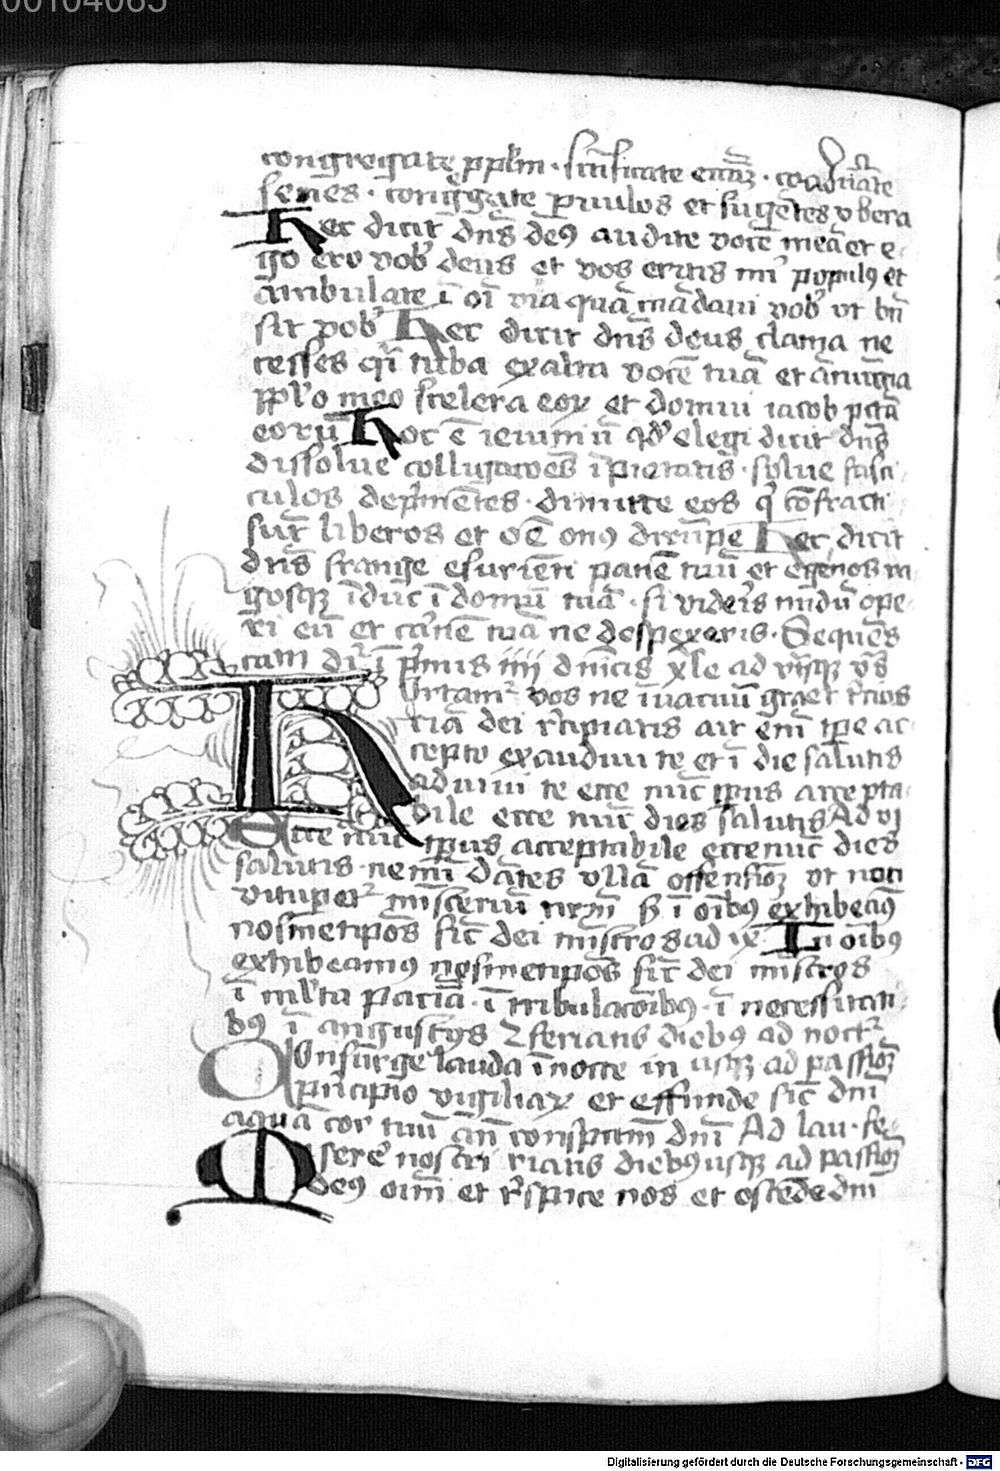 00104065
congregate ppl̄m · sc̄ificate ecc̄iaȝ · coadunate
senes · cong̅gate paruulos et sugētes vbera
Hec dicit dn̄s deꝰ audite vocē meā et e
go ero vob̛ deus et vos eritis mi̛ populꝰ et
ābulate ī oī via quā mādaui vob̛ vt bn̄
sit vob̛ Hec dicit dn̄s deus clama ne
cesses qī tuba exalta vocē tuā et ānūcia
pplo meo scelera eoꝝ et domui iacob pctā
eorū Hoc ē ieiuniū qd̛ elegi dicit dn̄s
dissolue colligacōes īpietatis · solue fasci
culos dep̛mētes · dimitte eos q̛ cōfracti
sūt liberos et oē onꝰ dirūpe Hec dicit
dn̄s frange esurīeti panē tuū et egenos va
gosqȝ īduc ī domū tuā · si vider̛is nudū ope
ri eū et carnē tuā ne despexeris · Sequēs
cam dr̄ ī p̛mis iiij dn̄icis xle ad vr̄sqȝ vs̄
Hortam̛ vos ne ī vacuū graȝ r̄cius
ciā dei r̄cipiatis ait eni tp̄e ac
cepto exaudiui te et ī die salutis
adiuui te ecce nūc tp̄us accepta
bile ecce nūc dies salutis Ad vj
Ecce nūc tp̄us acceptabile ecce nūc dies
salutis · nemī dātes vllā offensioȝ vt non
vitupet̛ mīsteriū nr̄m sȝ ī oībꝰ exhibeaꝰ
nosmetipōs sic̄ dei mīstros ad ix In oībꝰ
exhibeamꝰ nosmetipōs sic̄ dei mīstros
ī ml̛ta paciā · ī tribulacōibꝰ · ī necessitati
bꝰ ī angustijs Ꝫ ferialis diebꝰ ad noct̛
Consurge lauda ī nocte in usqȝ ad passioȝ
principio vigiliaꝝ et effunde sic̄ dm̄
aquā cor tuū an̄ conspctum dn̄i Ad lau · fe
Miserē nostri rialis diebꝰ usqȝ ad passioȝ
deꝰ oīm et r̛spice nos et ostēde dni
Digitalisierung gefördert durch die Deutsche Forschungsgemeinschaft - DFG